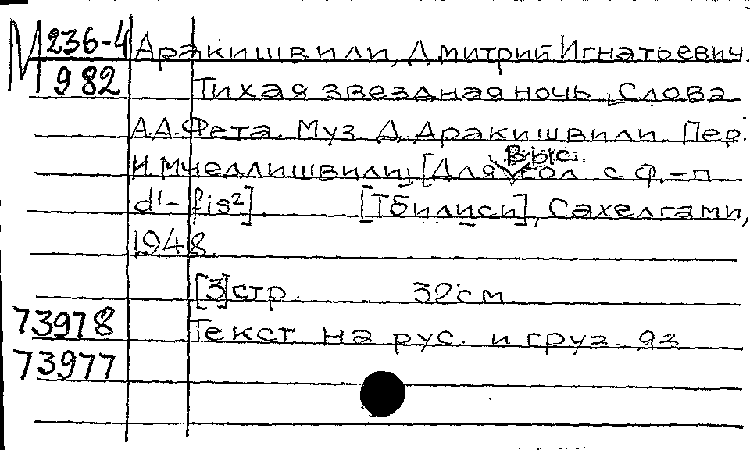 М 236-4 Аракишвили, Дмитрий Игнатьевич.
982 Тихая звездная ночь. Слова
А.А. Фета. Муз. Д. Аракишвили. Пер.
И. Мчедлишвили. [Для выс. гол. с ф.-п.
d¹- fis²]. [Тбилиси], Сахелгами,
1948.
[3] стр. 32 см
73978 Текст на рус. и груз. яз.
73977